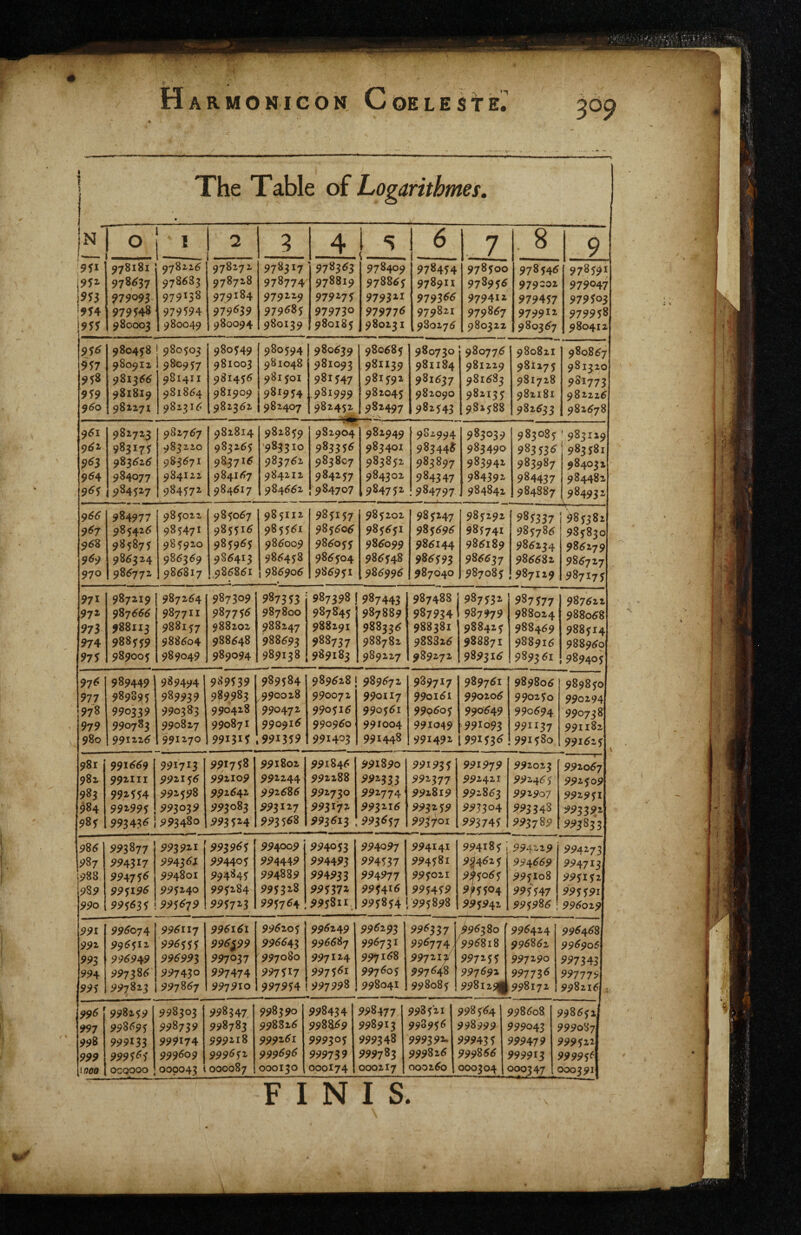 HARMONICON COELESTE. 309
The Table of Logarithmes.
N 0 1 2 3 4 5 6 7 8 9
951 978181 978226 978272 978317 978363 978409 978454 978500 978546 978591
952 978637 978683 978728 978774 978819 978865 978911 978956 979002 979047
953 979093 979138 979184 979229 979275 979321 979366 979412 979457 979503
954 979548 979594 979639 979685 979730 979776 979821 979867 979912 979958
955 980003 980049 980094 980139 980185 980231 980276 980322 980367 980412
956 980458 980503 980549 980594 980639 980685 980730 980776 980821 980867
957 980912 980957 981003 981048 981093 981139 981184 981229 981275 981320
958 981366 981411 981456 981501 981547 981592 981637 981683 981728 981773
959 981819 981864 981909 981954 981999 982045 982090 982135 982181 982226
960 982271 982316 982362 982407 982452 982497 982543 982588 982633 982678
961 982723 982767 982814 982859 982904 982949 982994 983039 983085 983129
962 983175 983220 983265 983310 983356 983401 983446 983490 983536 983581
963 983626 983671 983716 983762 983807 983852 983897 983942 983987 984032
964 984077 984122 984167 984212 984257 984302 984347 984392 984437 984482
965 984527 984572 984617 984662 984707 984752 984797 984842 984887 984932
966 984977 985022 985067 985112 985157 985202 985247 985292 985337 985382
967 985426 985471 985516 985561 985606 985651 985696 985741 985786 985830
968 985875 985920 985965 986009 986055 986099 986144 986189 986234 986279
969 986324 986369 986413 986458 986504 986548 986593 986637 986682 986727
970 986772 986817 986861 986906 986951 986996 987040 987085 987129 987175
971 987219 987264 987309 987353 987398 987443 987488 987532 987577 987622
972 987666 987711 987756 987800 987845 987889 987934 987979 988024 988068
973 988113 988157 988202 988247 988291 988336 988381 988425 988469 988514
974 988559 988604 988648 988693 988737 988782 988826 988871 988916 988960
975 989005 989049 989094 989138 989183 989227 989272 989316 989361 989405
976 989449 989494 989539 989584 989628 989672 989717 989761 989806 989850
977 989895 989939 989983 990028 990072 990117 990161 990206 990250 990294
978 990339 990383 990428 990472 990516 990561 990605 990649 990694 990738
979 990783 990827 990871 990916 990960 991004 991049 991093 991137 991182
980 991226 991270 991315 991359 991403 991448 991492 991536 991580 991625
981 991669 991713 991758 991802 991846 991890 991935 991979 992023 992067
982 992111 992156 992109 992244 992288 992333 992377 992421 992465 992509
983 992554 992598 992642 992686 992730 992774 992819 992863 992907 992951
984 992995 993039 993083 993127 993172 993216 993259 993304 993348 993392
985 993436 993480 993524 993568 993613 993657 993701 993745 993789 993833
986 993877 993921 993965 994009 994053 994097 994141 994185 994229 994273
987 994317 994361 994405 994449 994493 994537 994581 994625 994669 994713
988 994756 994801 994845 994889 994933 994977 995021 995065 995108 995152
989 995196 995240 995284 995328 995372 995416 995459 995504 995547 995591
990 995635 995679 995723 995764 995811 995854 995898 995942 995986 996029
991 996074 996117 996161 996205 996249 996293 996337 996380 996424 996468
992 996512 996555 996599 996643 996687 996731 996774 996818 996862 996906
993 996949 996993 997037 997080 997124 997168 997212 997255 997290 997343
994 997386 997430 997474 997517 997561 997605 997648 997692 997736 997779
995 997823 997867 997910 997954 997998 998041 998085 998129 998172 998216
996 998259 998303 998347 998390 998434 998477 998521 998564 998608 998652
997 998695 998739 998783 998826 998869 998913 998956 998999 999043 999087
998 999133 999174 999218 999261 999305 999348 999392 999435 999479 999522
999 999565 999609 999652 999696 999739 999783 999826 999866 999913 999956
1000 000000 000043 000087 000130 000174 000217 000260 000304 000347 000391
FINIS.